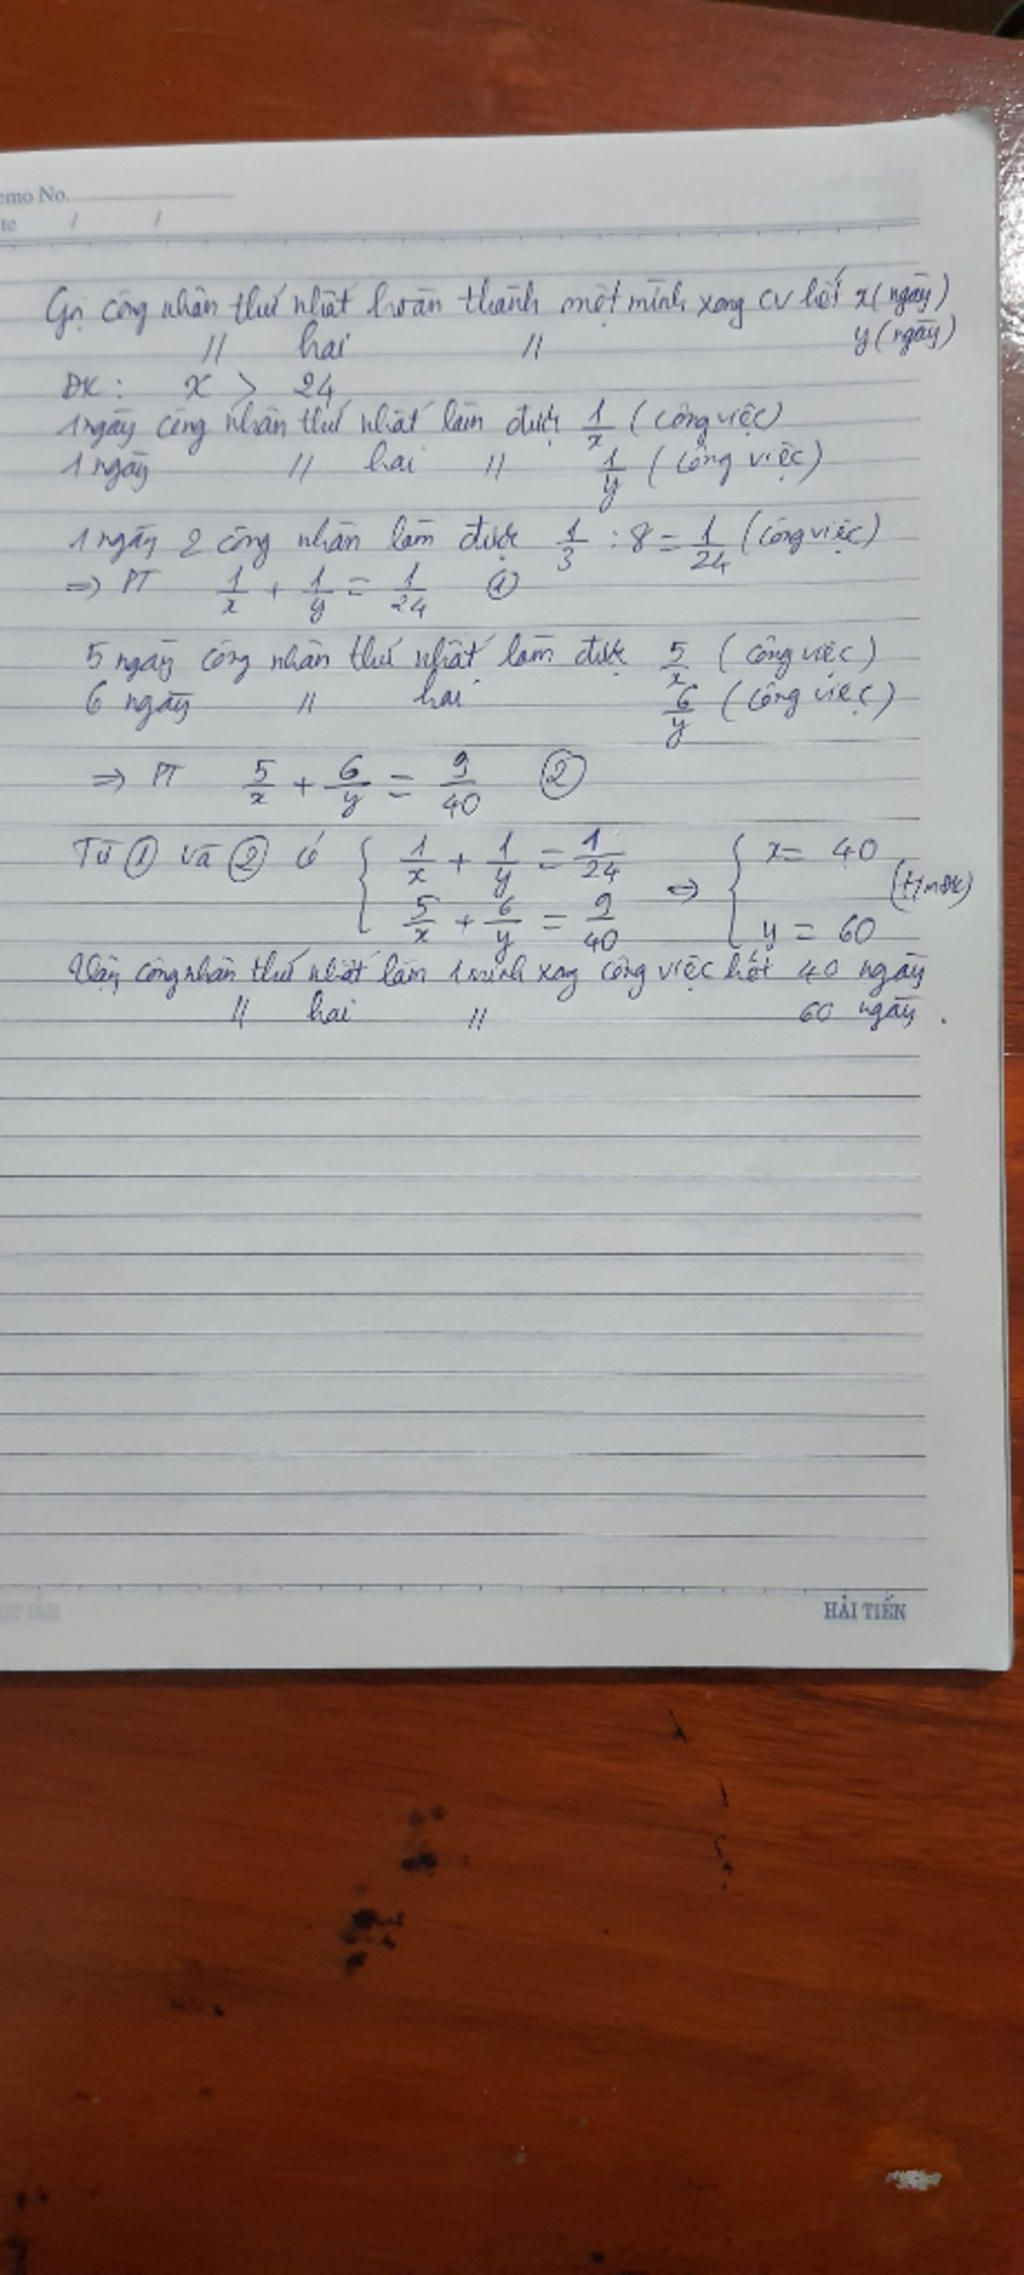 emo No.
te / /
Gọi công nhân thứ nhất hoàn thành một mình xong CV hết x (ngày)
// hai // y (ngày)
ĐK: x > 24
1 ngày công nhân thứ nhất làm được 1/x (công việc)
1 ngày // hai // 1/y (công việc)
1 ngày 2 công nhân làm được 1/3 : 8 = 1/24 (công việc)
=> PT 1/x + 1/y = 1/24 ①
5 ngày công nhân thứ nhất làm được 5/x (công việc)
6 ngày // hai 6/y (công việc)
=> PT 5/x + 6/y = 9/40 ②
Từ ① và ② có { 1/x + 1/y = 1/24 ⇔ { x = 40
5/x + 6/y = 9/40 y = 60 (t/m ĐK)
Vậy công nhân thứ nhất làm 1 mình xong công việc hết 40 ngày
// hai // 60 ngày.
HẢI TIẾN